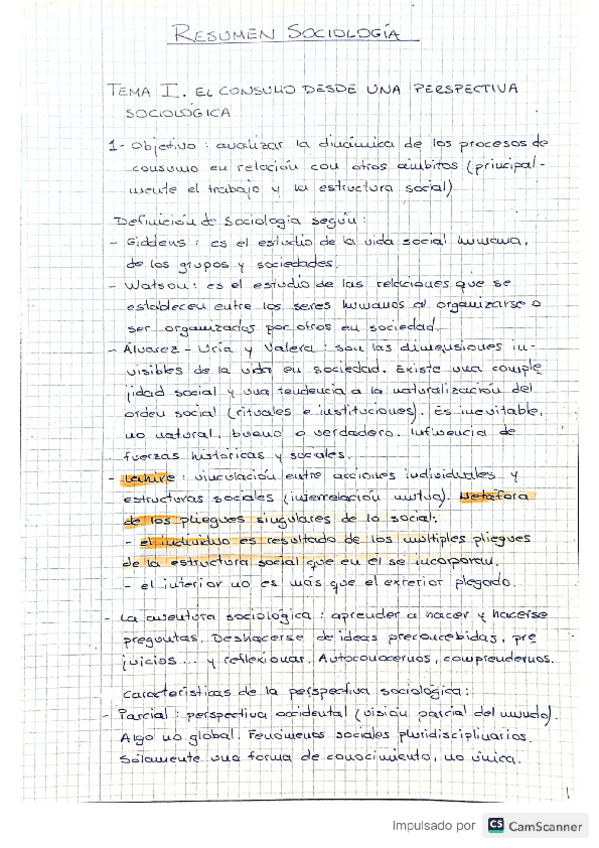 RESUMEN SOCIOLOGÍA
TEMA I. EL CONSUMO DESDE UNA PERSPECTIVA
SOCIOLÓGICA
1- Objetivo : analizar la dinámica de los procesos de
consumo en relación con otros ámbitos (principal-
mente el trabajo y la estructura social)
Definición de Sociología según :
- Giddens : es el estudio de la vida social humana,
de los grupos y sociedades.
- Watson: es el estudio de las relaciones que se
establecen entre los seres humanos al organizarse o
ser organizados por otros en sociedad.
- Álvarez - Uría y Valera : son las dimensiones in-
visibles de la vida en sociedad. Existe una comple
jidad social y una tendencia a la naturalización del
orden social (rituales e instituciones). Es inevitable,
no natural, bueno o verdadero. Influencia de
fuerzas históricas y sociales.
- Lahire : vinculación entre acciones individuales y
estructuras sociales (interrelación mutua). Metáfora
de los pliegues singulares de lo social:
- el individuo es resultado de los múltiples pliegues
de la estructura social que en él se incorporan.
- el interior no es más que el exterior plegado.
- La aventura sociológica : aprender a hacer y hacerse
preguntas. Deshacerse de ideas preconcebidas, pre
juicios... y reflexionar. Autoconocernos, comprendernos.
Características de la perspectiva sociológica :
- Parcial : perspectiva occidental (visión parcial del mundo).
Algo no global. Fenómenos sociales pluridisciplinarios.
Sólamente una forma de conocimiento, no única.
1
Impulsado por CS CamScanner